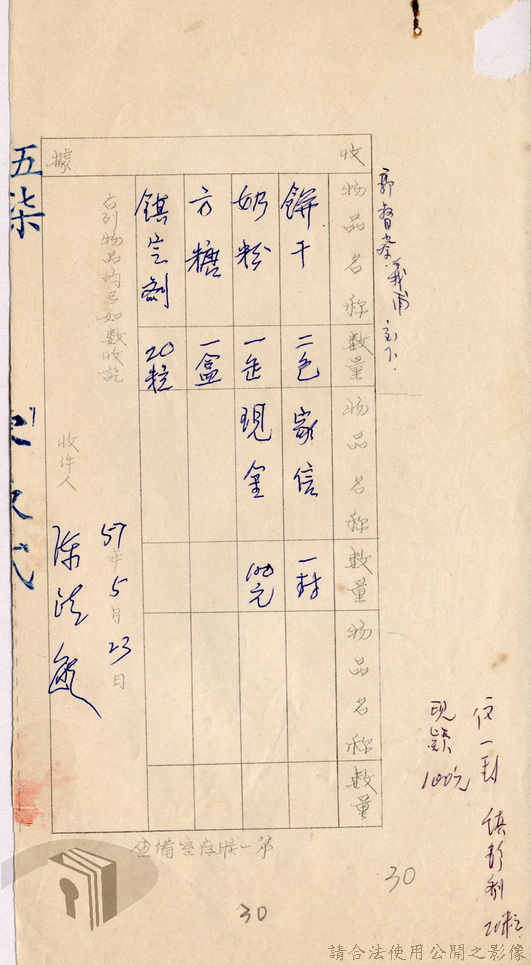 收據
物品名称
數量
物品名称
數量
物品名称
數量
餅干
二包
家信
一封
奶粉
一缶
現金
100元
方糖
一盒
鎮定劑
20粒
右列物品均已如數收訖
57年5月23日
收件人
陳
第一聯存室備查
信一封
現
100元
20粒
30
30
五柒
請合法使用公開之影像